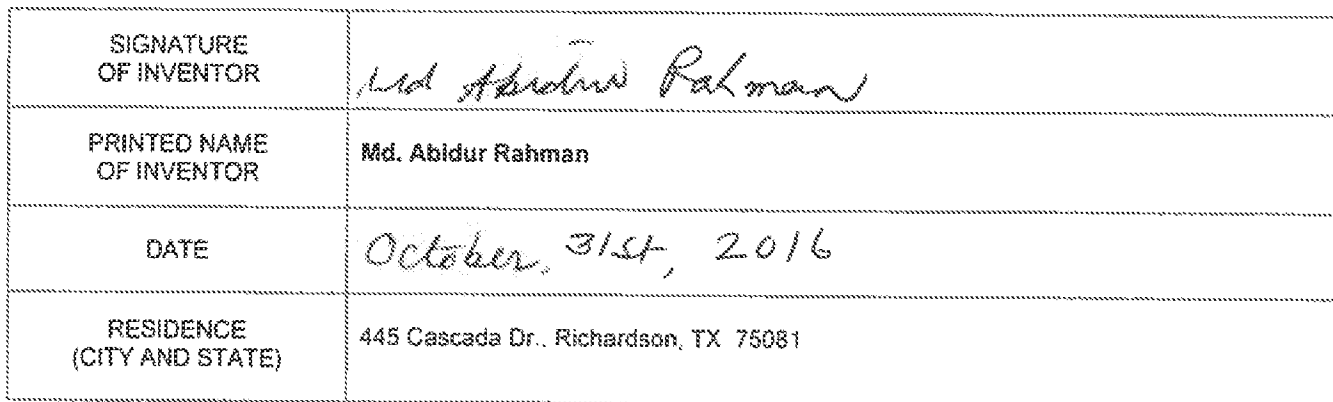 SIGNATURE
OF INVENTOR
Md Abidur Rahman
PRINTED NAME
OF INVENTOR
Md. Abidur Rahman
DATE
October, 31st, 2016
RESIDENCE
(CITY AND STATE)
445 Cascada Dr., Richardson, TX 75081